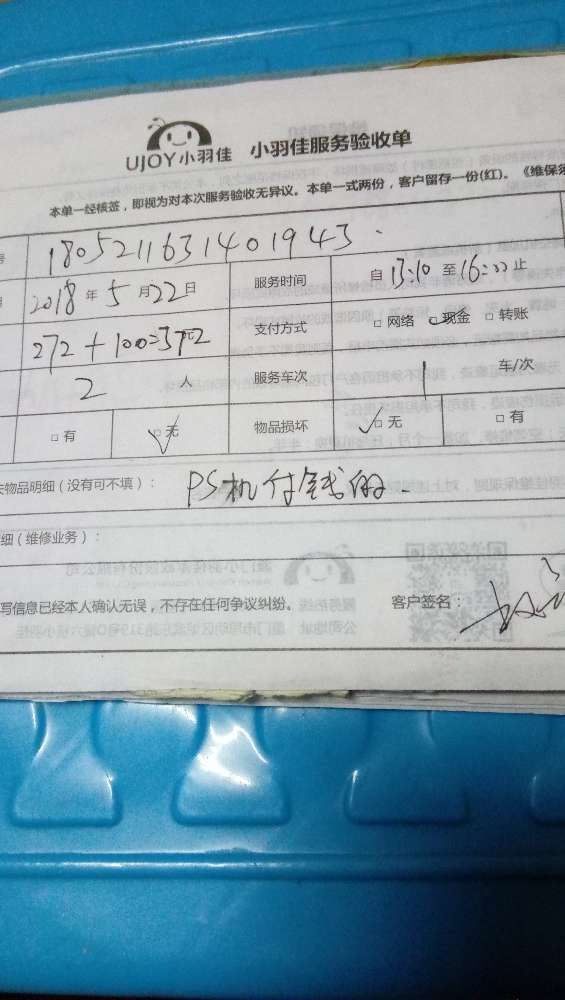 UJOY小羽佳 小羽佳服务验收单
本单一经核签，即视为对本次服务验收无异议。本单一式两份，客户留存一份(红)。《维保须
号 1805211631401943
期 2018年5月22日 服务时间 自13:10至16:22止
272+100=372 支付方式 □网络 □现金 □转账
2 人 服务车次 1 车/次
□有 □无 物品损坏 □无 □有
失物品明细（没有可不填）： PS机付钱的
细（维修业务）：
写信息已经本人确认无误，不存在任何争议纠纷。 客户签名：